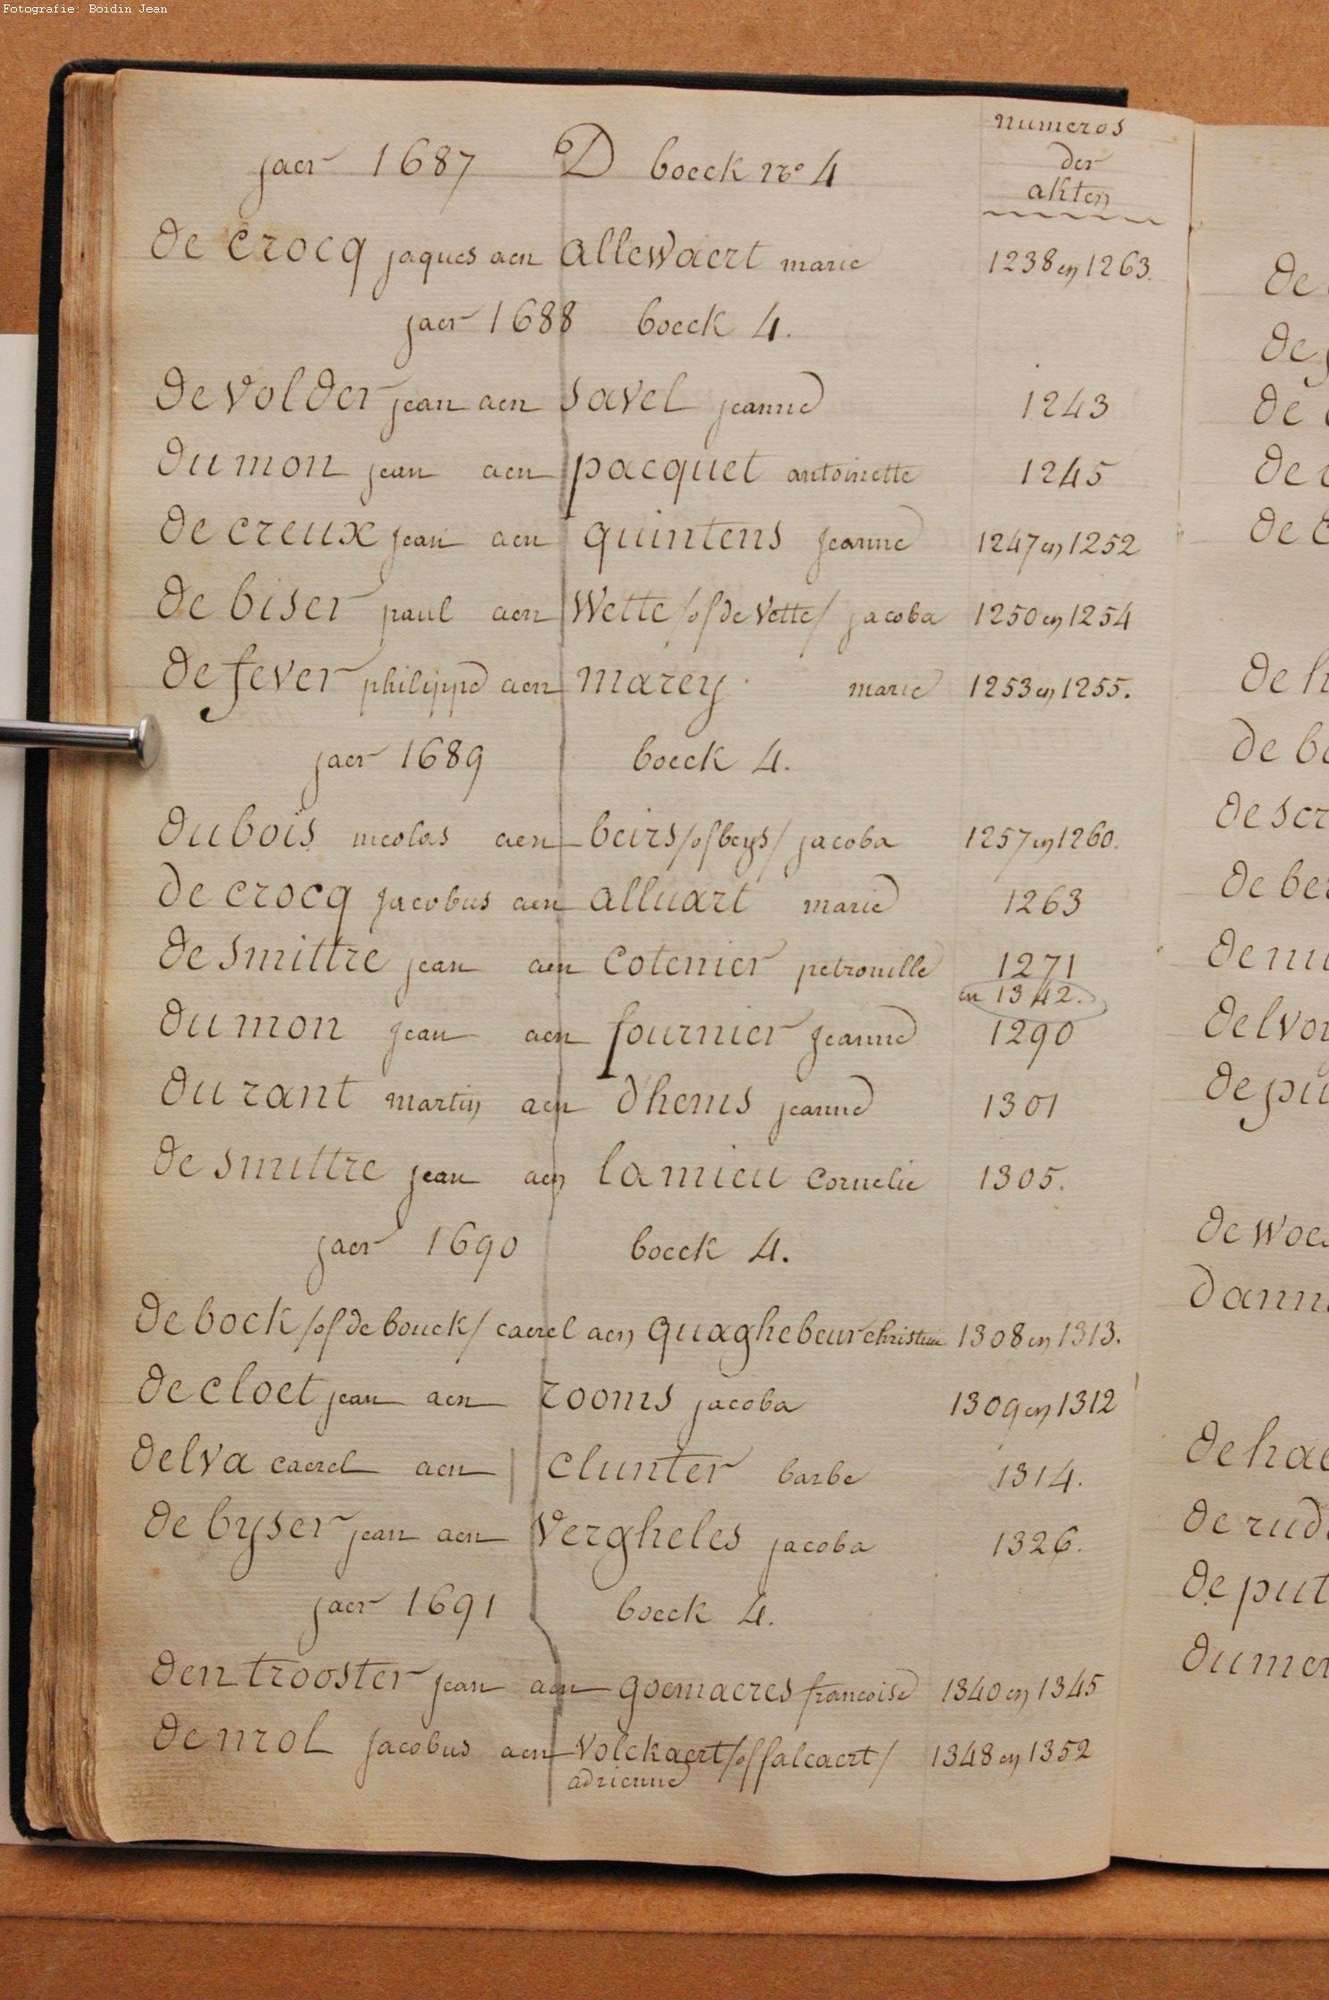 Fotografie: Boidin Jean
numeros
jaer 1687 D boeck no 4
der
akten
de crocq jaques aen allewaert marie 1238 en 1263.
jaer 1688 boeck 4.
de volder jean aen savel jeanne 1243
du mon jean aen pacquet antoinette 1245
de creux jean aen quintens jeanne 1247 en 1252
de biser paul aen Wette /of de Vette/ jacoba 1250 en 1254
de fever philippe aen marey marie 1253 en 1255.
jaer 1689 boeck 4.
dubois nicolas aen beirs /of beys/ jacoba 1257 en 1260.
de crocq jacobus aen alluart marie 1263
de smittre jean aen cotenier petronille 1271
en 1342.
du mon jean aen fournier jeanne 1290
durant martin aen d'hems jeanne 1301
de smittre jean aen lamieu Cornelie 1305.
jaer 1690 boeck 4.
de bock /of de bouck/ caerel aen quaghebeur christine 1308 en 1313.
de cloet jean aen rooms jacoba 1309 en 1312
delva caerel aen clunter barbe 1314.
de byser jean aen Vergheles jacoba 1326.
jaer 1691 boeck 4.
den trooster jean aen goemaeres francoise 1340 en 1345
de nrol jacobus aen Volckaert /of falcaert/ 1348 en 1352
adrienne
de
de
de
de
de c
de h
de be
de scr
de ber
de
delvo
de pu
de woe
dann
de hae
de rud
de put
du mer